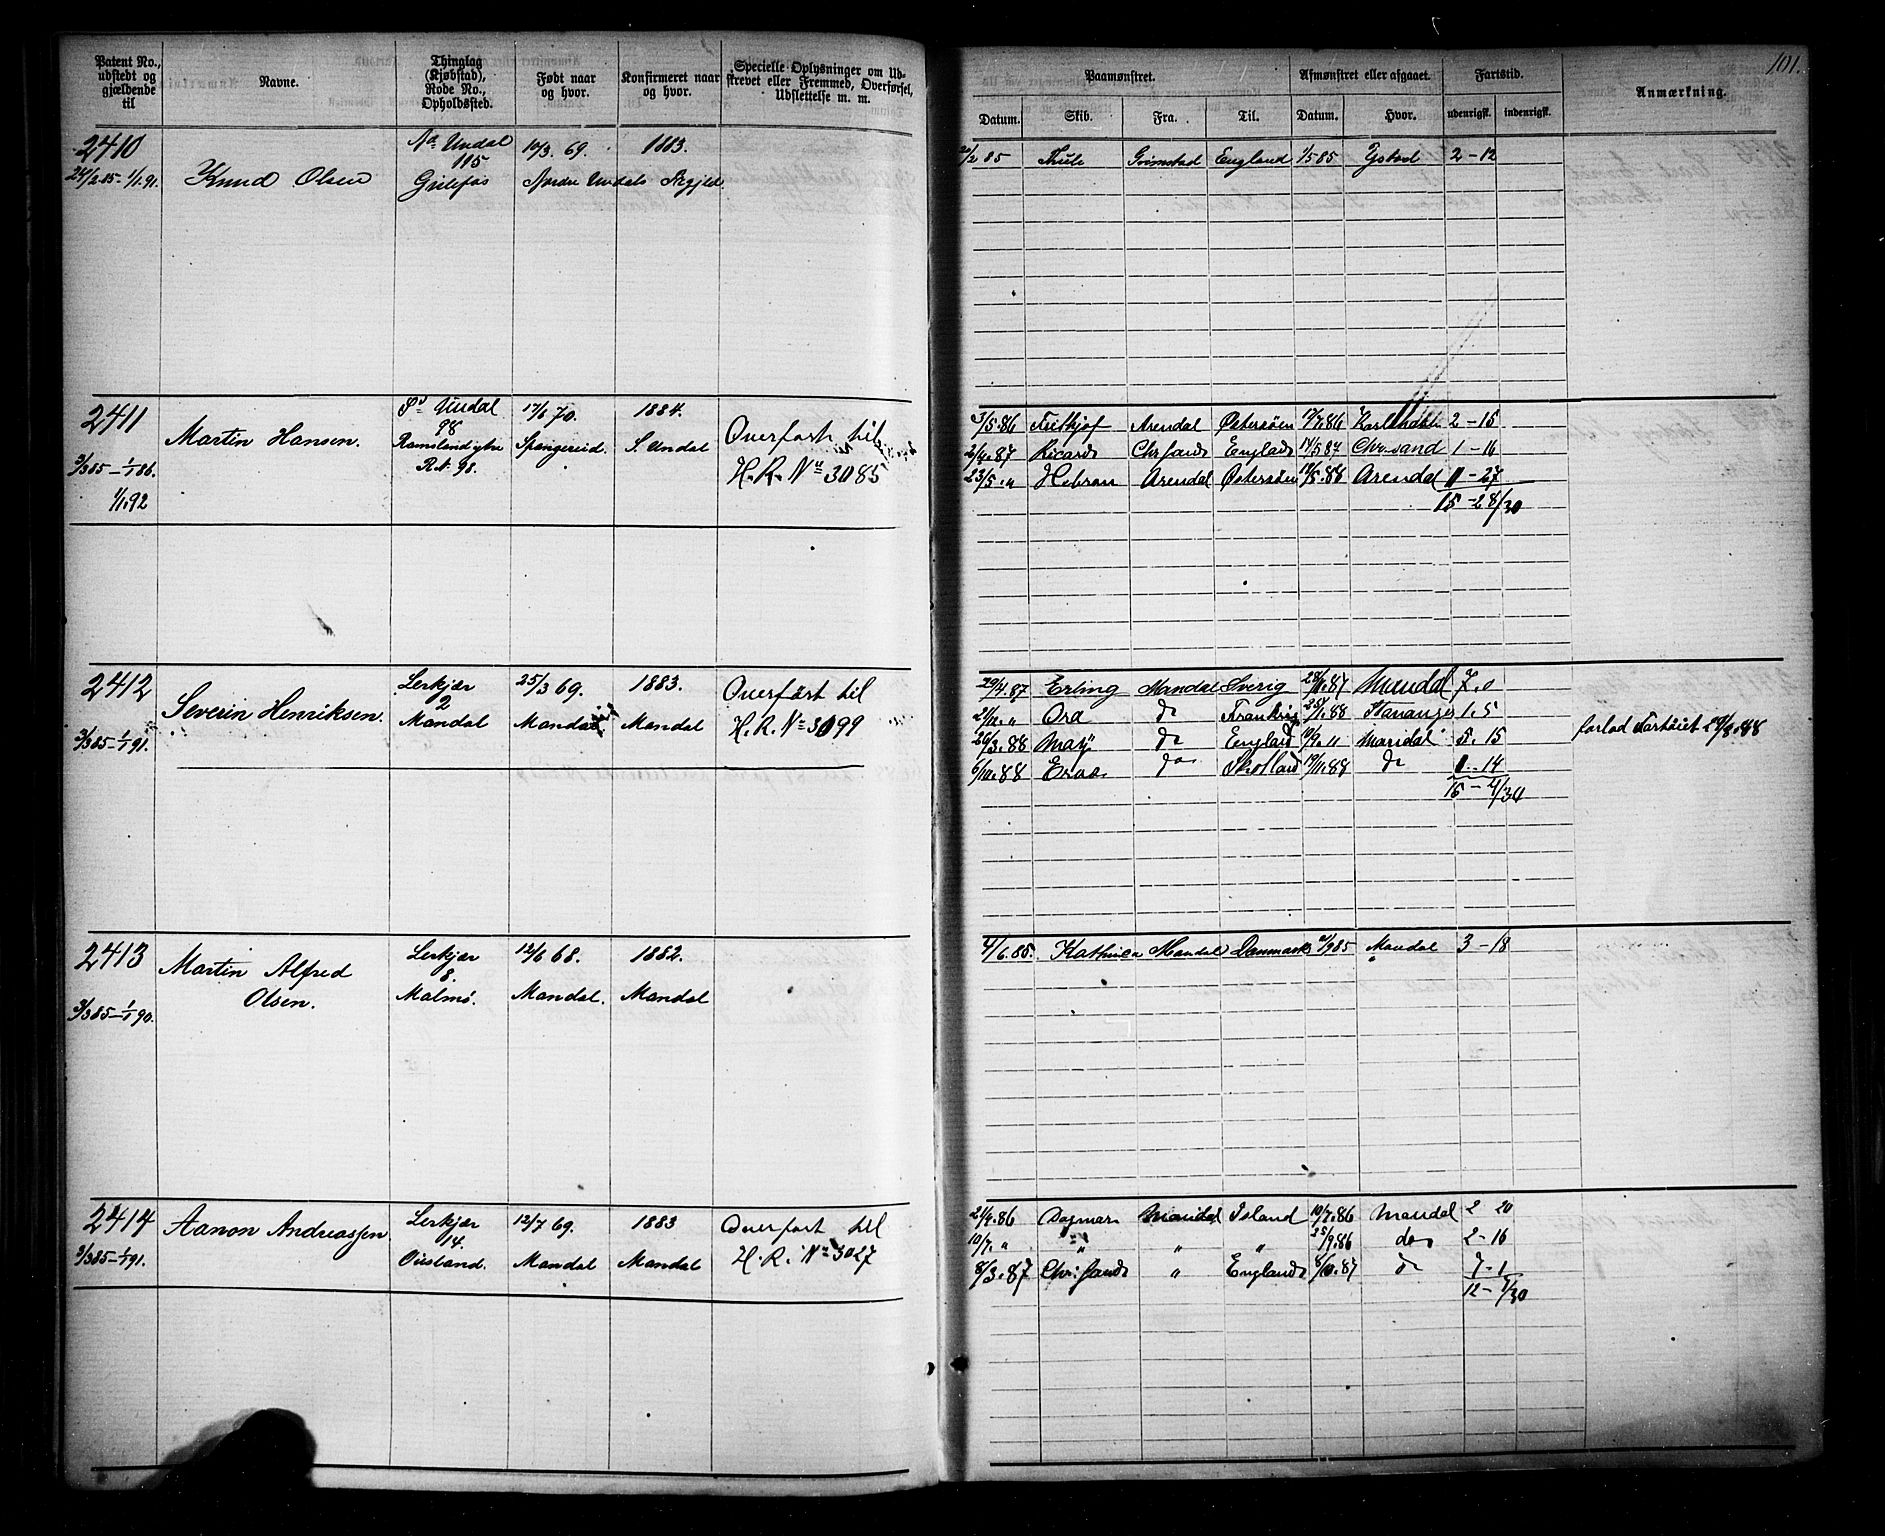 Patent No., udstedt og gjældende til
Navne.
Thinglag (Kjøbstad), Rode No., Opholdssted.
Født naar og hvor.
Konfirmeret naar og hvor.
Specielle Oplysninger om Udskrevet eller Fremmed, Overførsel, Udslettelse m. m.
Paamønstret.
Datum. Skib. Fra. Til.
Afmønstret eller afgaaet.
Datum. Hvor.
Fartstid.
udenrigsk. indenrigsk.
Anmærkning.
101.
2410
24/2 85 - 1/1 91.
Knud Olsen
Nø Undal
115
10/3 69.
Nordre Undals
1883.
20/2 85 Thule Grimstad England 1/5 85 Ystad 2-12
2411
3/3 85 - 1/1 86.
1/1 92
Martin Hansen.
Sø Undal
98
R.N. 98.
17/6 70.
Spangereid.
1884.
S. Undal
Overført til
H. R. No 3085
3/5 86 Fritkjof Arendal Østersøen 17/7 86 2-15
2/4 87 Ricard Chrsand England 14/5 87 Chr.sand 1-16
23/5 " Hebron Arendal Østersøen 19/5 88 Arendal 11-27
15-28/30
2412
3/3 85 - 1/1 91.
Severin Henriksen.
Lerkjær
2
Mandal
25/3 69.
Mandal
1883.
Mandal
Overført til
H. R. No 3099
29/4 87 Erling Mandal Sverig 28/11 87 Mandal 7. 0
Ora do 25/1 88 Stavanger 1. 5
26/3 88 do England Mandal 5. 15
forlod Fartøiet
6/10 88 do Skotland 19/11 88 do 1. 14
15-4/34
2413
3/3 85 - 1/1 90.
Martin Alfred Olsen.
Lerkjær
8.
Malmø.
12/6 68.
Mandal.
1882.
Mandal
4/6 85. Kathinca Mandal Danmark Mandal 3-18
2414
3/3 85 - 1/1 91.
Aanon Andreassen
Lerkjær
14.
Oiesland.
12/7 69.
Mandal
1883
Mandal
Overført til
H. R. No 3027
2/4 86 Dagmar Mandal Island 10/7 86 Mandal 2 20
10/7 " " " " 25/9 86 do 2-16
8/3 87 Chr:sand " England 6/10 87 do 7-1
12-7/30